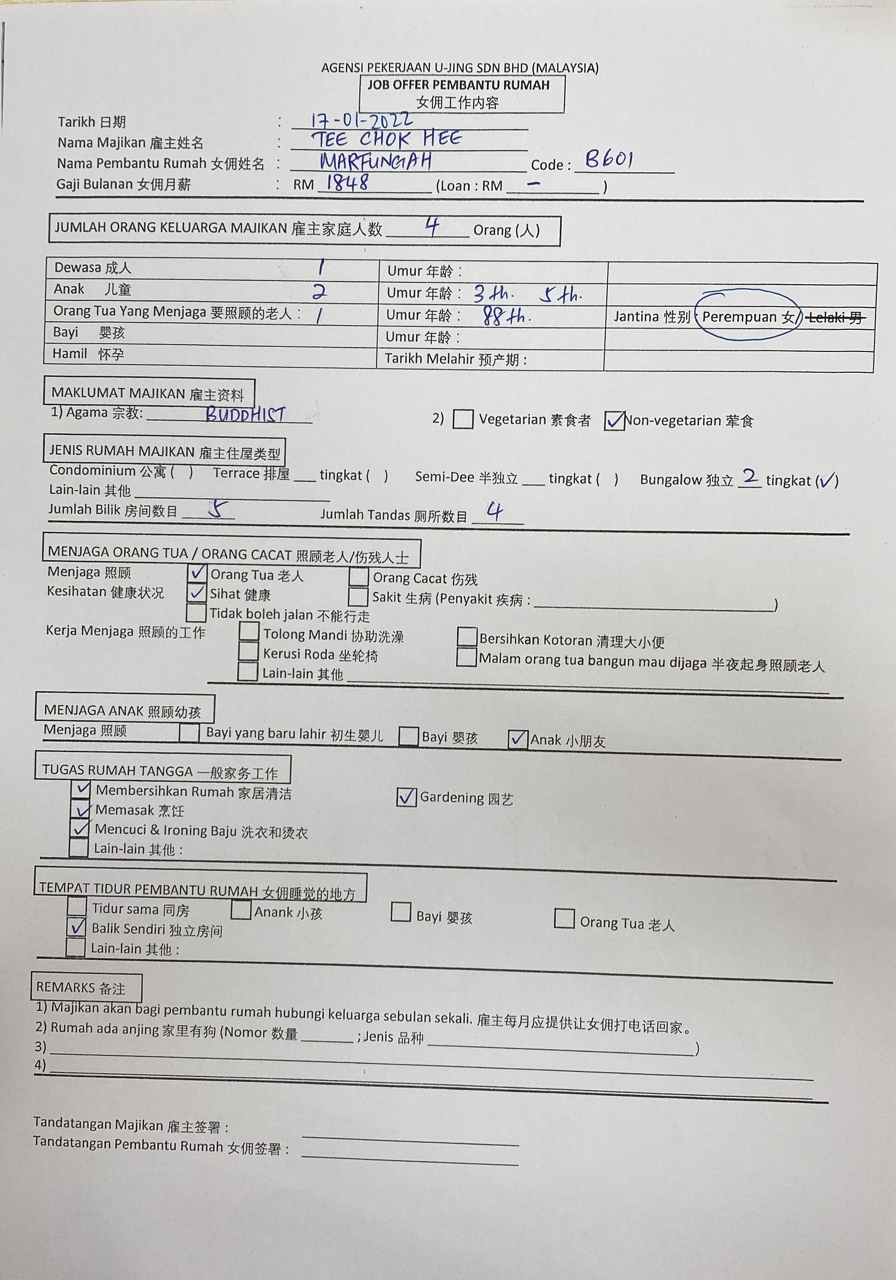 AGENSI PEKERJAAN U-JING SDN BHD (MALAYSIA)
JOB OFFER PEMBANTU RUMAH
女佣工作内容
Tarikh 日期 : 17-01-2022
Nama Majikan 雇主姓名 : TEE CHOK HEE
Nama Pembantu Rumah 女佣姓名 : MARFUNGAH Code : B601
Gaji Bulanan 女佣月薪 : RM 1848 (Loan : RM - )
JUMLAH ORANG KELUARGA MAJIKAN 雇主家庭人数 4 Orang (人)
Dewasa 成人 1 Umur 年龄 :
Anak 儿童 2 Umur 年龄 : 3 th. 5 th.
Orang Tua Yang Menjaga 要照顾的老人 : 1 Umur 年龄 : 88 th. Jantina 性别 : Perempuan 女/ Lelaki 男
Bayi 婴孩 Umur 年龄 :
Hamil 怀孕 Tarikh Melahir 预产期 :
MAKLUMAT MAJIKAN 雇主资料
1) Agama 宗教: BUDDHIST 2) Vegetarian 素食者 ✓ Non-vegetarian 荤食
JENIS RUMAH MAJIKAN 雇主住屋类型
Condominium 公寓 ( ) Terrace 排屋 ___ tingkat ( ) Semi-Dee 半独立 ___ tingkat ( ) Bungalow 独立 2 tingkat (✓)
Lain-lain 其他
Jumlah Bilik 房间数目 5 Jumlah Tandas 厕所数目 4
MENJAGA ORANG TUA / ORANG CACAT 照顾老人/伤残人士
Menjaga 照顾 ✓ Orang Tua 老人 Orang Cacat 伤残
Kesihatan 健康状况 ✓ Sihat 健康 Sakit 生病 (Penyakit 疾病 : )
Tidak boleh jalan 不能行走
Kerja Menjaga 照顾的工作 Tolong Mandi 协助洗澡 Bersihkan Kotoran 清理大小便
Kerusi Roda 坐轮椅 Malam orang tua bangun mau dijaga 半夜起身照顾老人
Lain-lain 其他
MENJAGA ANAK 照顾幼孩
Menjaga 照顾 Bayi yang baru lahir 初生婴儿 Bayi 婴孩 ✓ Anak 小朋友
TUGAS RUMAH TANGGA 一般家务工作
✓ Membersihkan Rumah 家居清洁 ✓ Gardening 园艺
✓ Memasak 烹饪
✓ Mencuci & Ironing Baju 洗衣和烫衣
Lain-lain 其他 :
TEMPAT TIDUR PEMBANTU RUMAH 女佣睡觉的地方
Tidur sama 同房 Anank 小孩 Bayi 婴孩 Orang Tua 老人
✓ Balik Sendiri 独立房间
Lain-lain 其他 :
REMARKS 备注
1) Majikan akan bagi pembantu rumah hubungi keluarga sebulan sekali. 雇主每月应提供让女佣打电话回家。
2) Rumah ada anjing 家里有狗 (Nomor 数量 ______ ; Jenis 品种 ______ )
3)
4)
Tandatangan Majikan 雇主签署 :
Tandatangan Pembantu Rumah 女佣签署 :